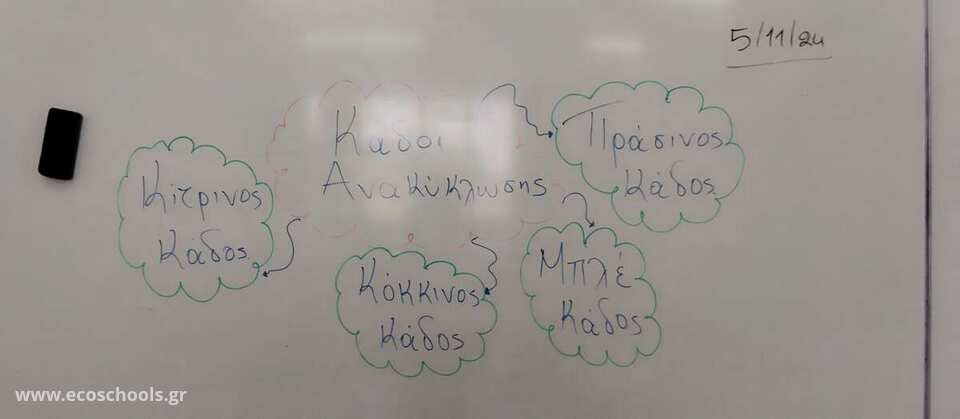 5/11/24
Κάδοι
Ανακύκλωσης
Πράσινος
Κάδος
Κίτρινος
Κάδος
Κόκκινος
Κάδος
Μπλέ
Κάδος
www.ecoschools.gr